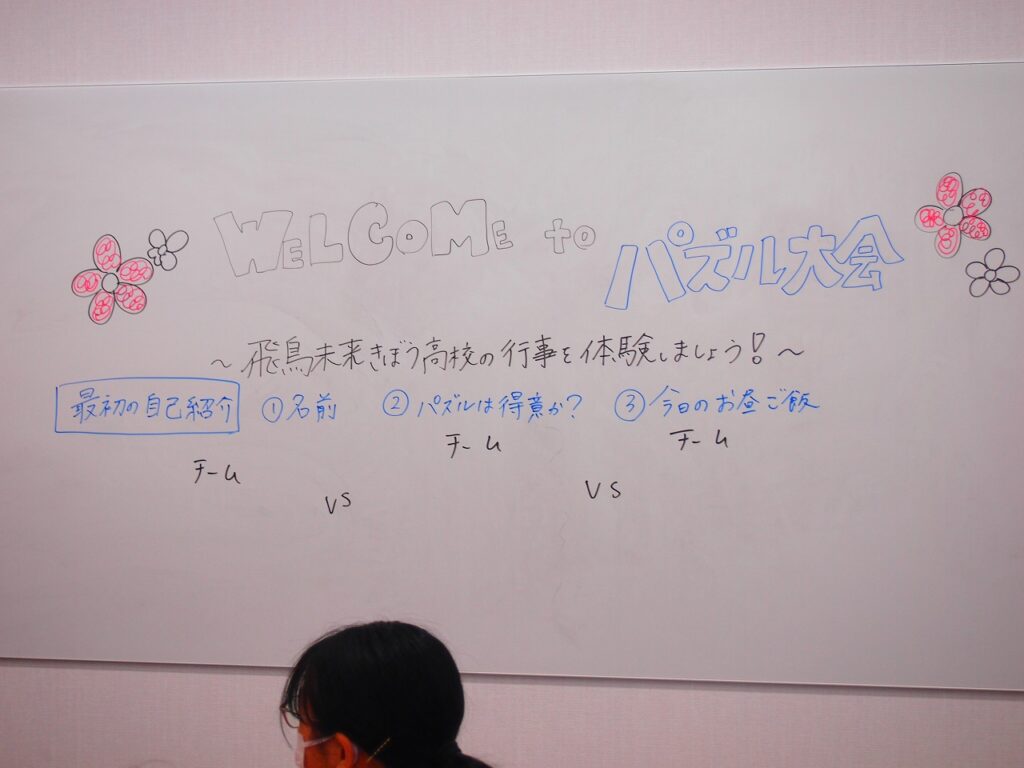 WELCOME to パズル大会
~飛鳥未来きぼう高校の行事を体験しましょう!~
最初の自己紹介 ①名前 ②パズルは得意か? ③今日のお昼ご飯
チーム チーム チーム
vs vs